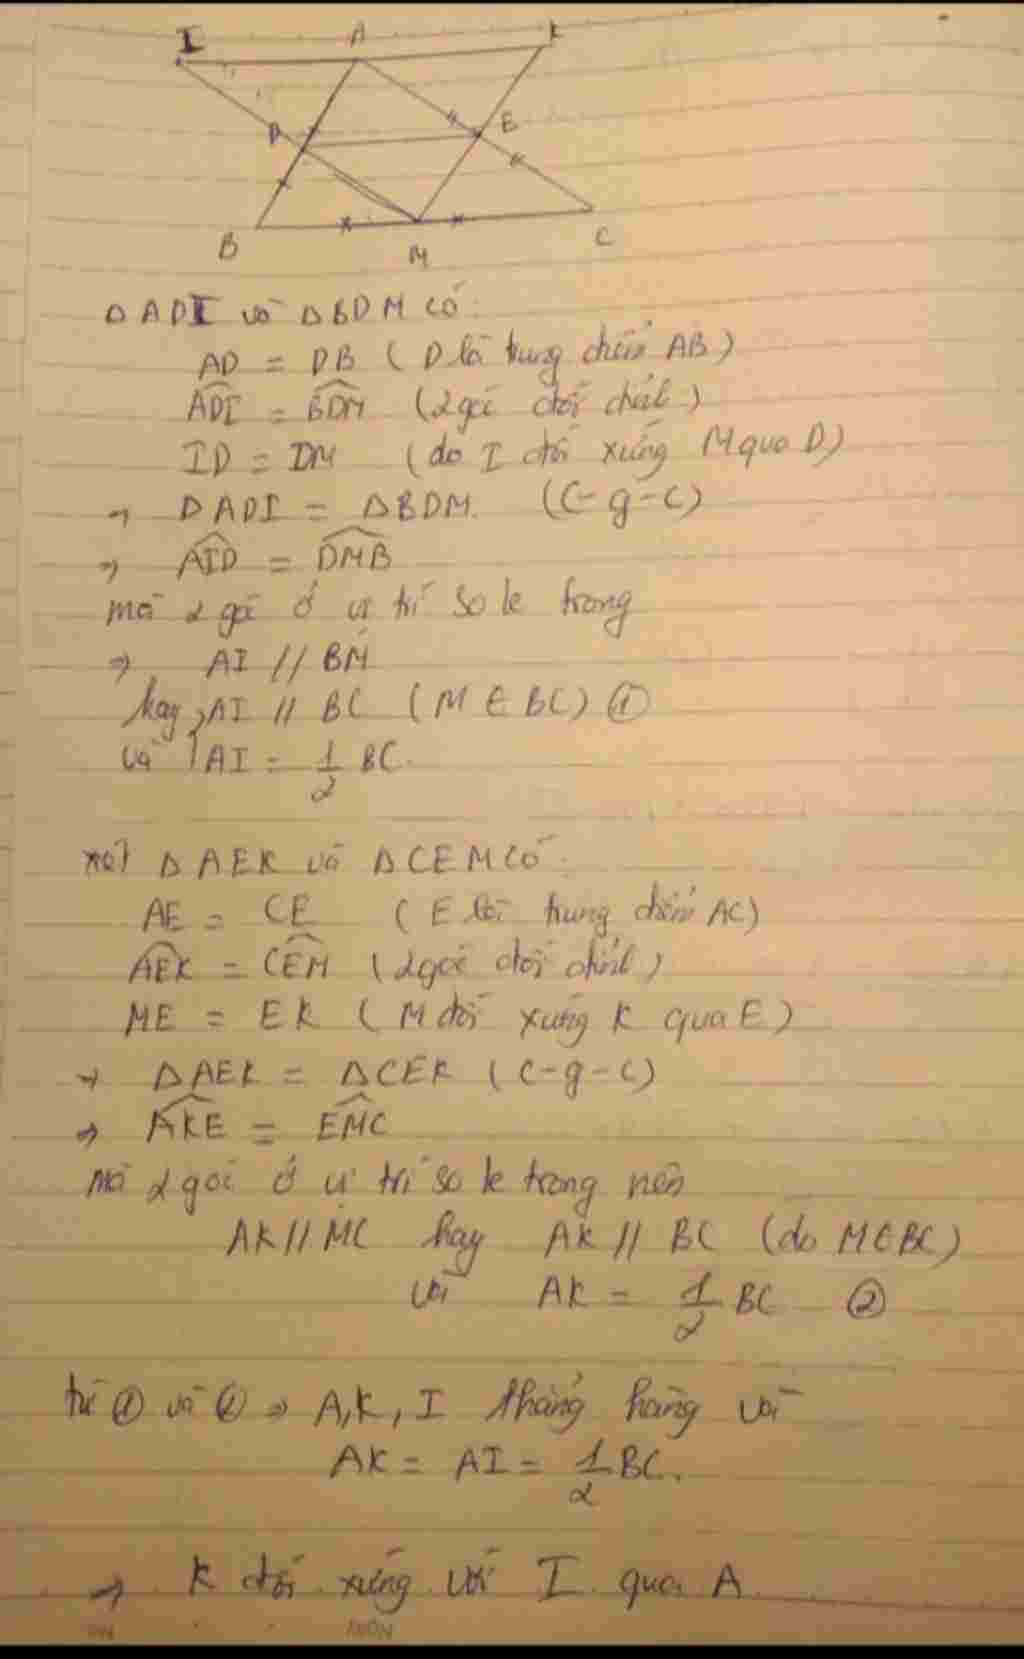 I A K
D E
B M C
Δ ADI và Δ BDM có:
AD = DB ( D là trung điểm AB )
ADI = BDM ( 2 góc đối đỉnh )
ID = DM ( do I đối xứng M qua D )
→ Δ ADI = Δ BDM. ( c-g-c )
⇒ AID = DMB
mà 2 góc ở vị trí so le trong
⇒ AI // BM
hay AI // BC ( M ∈ BC ) ①
và AI = 1/2 BC.
xét Δ AEK và Δ CEM có:
AE = CE ( E là trung điểm AC )
AEK = CEM ( 2 góc đối đỉnh )
ME = EK ( M đối xứng K qua E )
→ Δ AEK = Δ CEK ( c-g-c )
⇒ AKE = EMC
mà 2 góc ở vị trí so le trong nên
AK // MC hay AK // BC ( do M ∈ BC )
và AK = 1/2 BC ②
từ ① và ② ⇒ A, K, I thẳng hàng và
AK = AI = 1/2 BC.
→ K đối xứng với I qua A